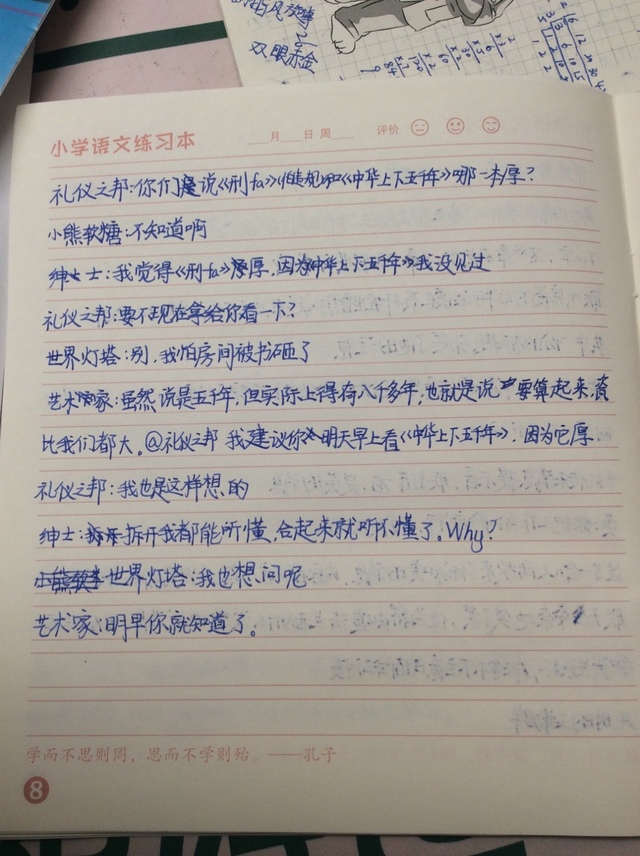 双眼示金
小学语文练习本 ___月___日 周___ 评价
礼仪之邦:你们是说《刑fa》《胜规》和《中华上下五千年》哪一本厚?
小熊软糖:不知道啊
绅士:我觉得《刑fa》厚,因为《中华上下五千年》我没见过
礼仪之邦:要不现在拿给你看一下?
世界灯塔:别,我怕房间被书砸了
艺术家:虽然说是五千年,但实际上得有八千多年,也就是说 要算起来,
比我们都大。@礼仪之邦 我建议你 明天早上看《中华上下五千年》,因为它厚
礼仪之邦:我也是这样想的
绅士:拆开我都能听懂,合起来就听不懂了。Why?
世界灯塔:我也想问呢
艺术家:明早你就知道了。
学而不思则罔,思而不学则殆。——孔子
8